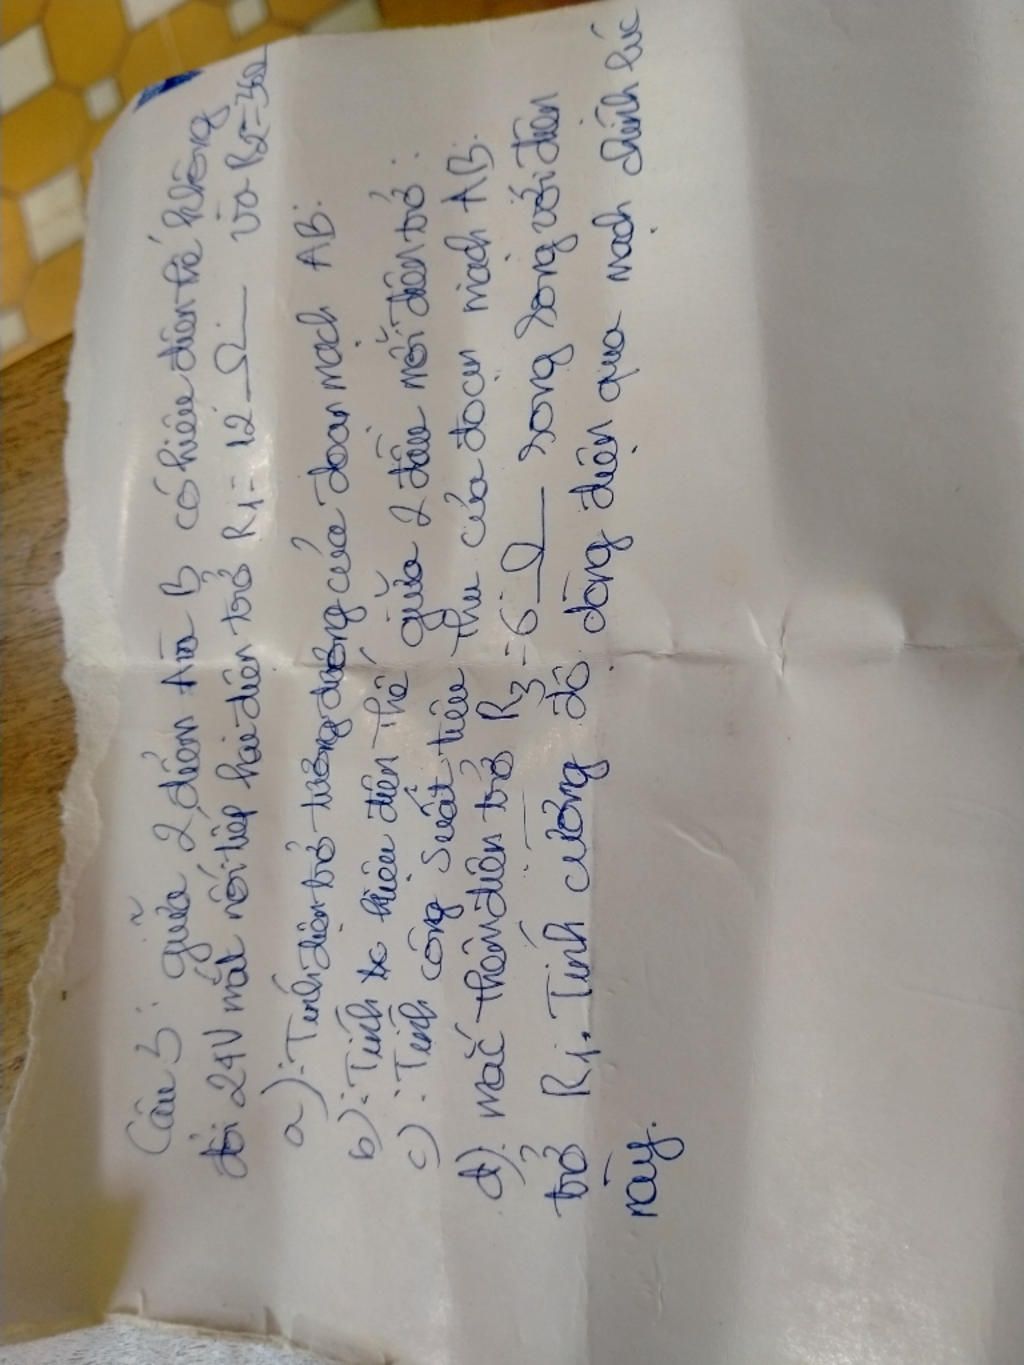 Câu 3: giữa 2 điểm A và B có hiệu điện thế không
đổi 24V mắc nối tiếp hai điện trở R1 = 12 Ω và R2 = 36Ω
a): Tính điện trở tương đương của đoạn mạch AB.
b): Tính hiệu điện thế giữa 2 đầu mỗi điện trở.
c): Tính công suất tiêu thu của đoạn mạch AB.
d). mắc thêm điện trở R3 = 6 Ω song song với điện
trở R1. Tính cường độ dòng điện qua mạch chính lúc
này.